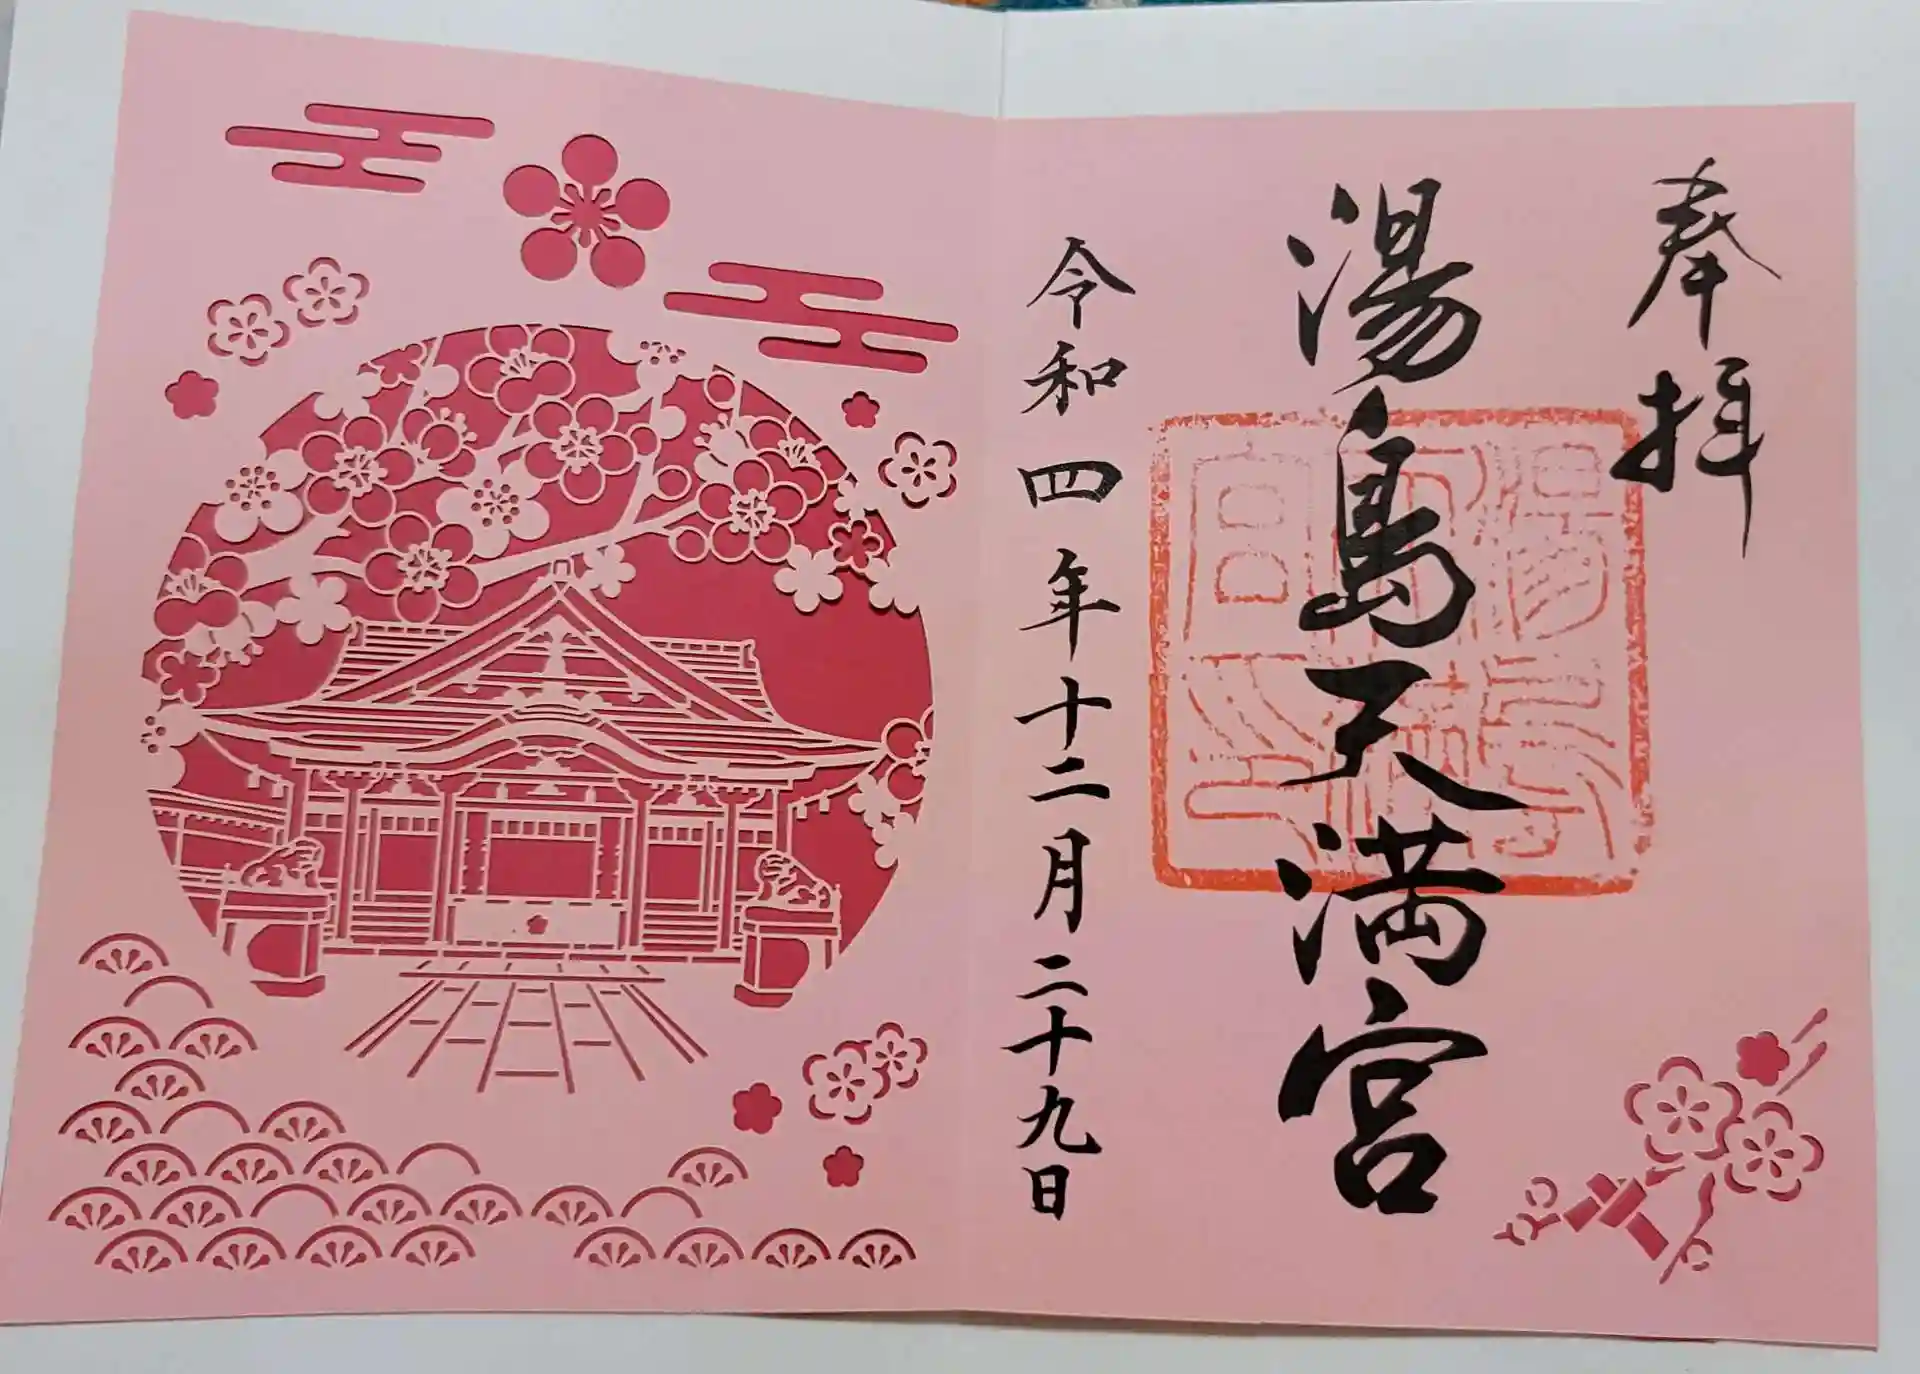 奉拝
湯島天満宮
令和四年十二月二十九日